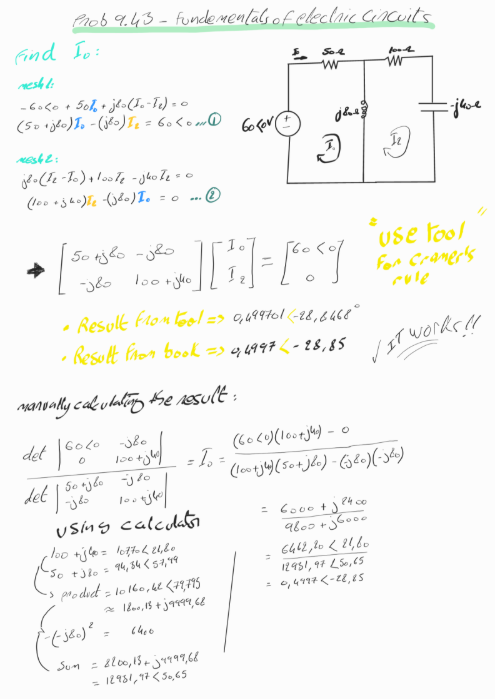 Prob 9.43 - Fundamentals of electric circuits
Find I₀:
mesh1:
-60<0 + 50I₀ + j80(I₀-I₂) = 0
(50+j80)I₀ - (j80)I₂ = 60<0 ...①
mesh2:
j80(I₂-I₀)+100I₂ - j40I₂ = 0
(100+j40)I₂ - (j80)I₀ = 0 ...②
I₀
50Ω
100Ω
60<0V
+
-
j80Ω
-j40Ω
I₀
I₂
[50+j80 -j80] [I₀] = [60<0]
[-j80 100+j40] [I₂] [0]
"use tool"
For cramer's
rule
• Result from tool => 0,499701<-28,8468°
• Result from book => 0,4997<-28,85
✓ IT works!!
manually calculating the result:
det |60<0 -j80|
|0 100+j40|
det |50+j80 -j80|
|-j80 100+j40|
= I₀ = (60<0)(100+j40) - 0
(100+j40)(50+j80) - (j80)(-j80)
= 6000 + j2400
9800 + j6000
= 6462,20<21,80
12981,97<50,65
= 0,4997<-28,85
using calculator
100 + j40 = 107,70<21,80
50 + j80 = 94,34<57,99
product = 10160,62<79,795
≈ 1800,15 + j9999,68
-(-j80)² = 6400
Som = 8200,15 + j9999,68
= 12981,97<50,65